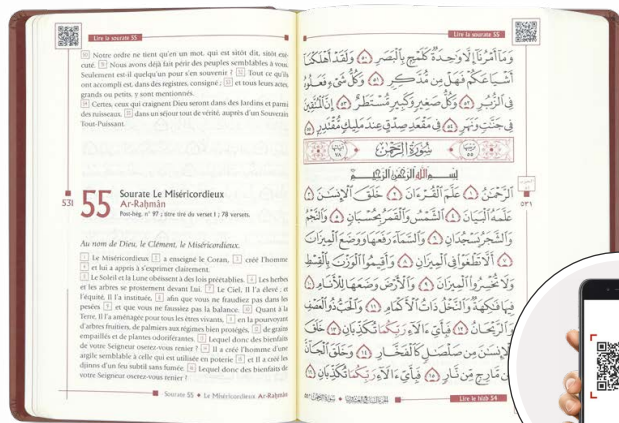 Lire la sourate 55
50 Notre ordre ne tient qu'en un mot, qui est sitôt dit, sitôt exé-
cuté. 51 Nous avons déjà fait périr des peuples semblables à vous.
Seulement est-il quelqu'un pour s'en souvenir ? 52 Tout ce qu'ils
ont accompli est, dans des registres, consigné ; 53 et tous leurs actes,
grands ou petits, y sont mentionnés.
54 Certes, ceux qui craignent Dieu seront dans des Jardins et parmi
des ruisseaux, 55 dans un séjour tout de vérité, auprès d'un Souverain
Tout-Puissant.
531
55
Sourate Le Miséricordieux
Ar-Raḥmân
Post-hég. n° 97 ; titre tiré du verset 1 ; 78 versets.
Au nom de Dieu, le Clément, le Miséricordieux.
1 Le Miséricordieux 2 a enseigné le Coran, 3 créé l'homme
4 et lui a appris à s'exprimer clairement.
5 Le Soleil et la Lune obéissent à des lois préétablies. 6 Les herbes
et les arbres se prosternent devant Lui. 7 Le Ciel, Il l'a élevé ; et
l'équité, Il l'a instituée, 8 afin que vous ne fraudiez pas dans les
pesées 9 et que vous ne faussiez pas la balance. 10 Quant à la
Terre, Il l'a aménagée pour tous les êtres vivants, 11 en la pourvoyant
d'arbres fruitiers, de palmiers aux régimes bien protégés, 12 de grains
empaillés et de plantes odoriférantes. 13 Lequel donc des bienfaits
de votre Seigneur oserez-vous renier ? 14 Il a créé l'homme d'une
argile semblable à celle qui est utilisée en poterie 15 et Il a créé les
djinns d'un feu subtil sans fumée. 16 Lequel donc des bienfaits de
votre Seigneur oserez-vous renier ?
Sourate 55 • Le Miséricordieux Ar-Raḥmân
Lire la sourate 55
وَمَآ أَمْرُنَآ إِلَّا وَٰحِدَةٌ كَلَمْحٍۭ بِٱلْبَصَرِ ٥٠ وَلَقَدْ أَهْلَكْنَآ
أَشْيَاعَكُمْ فَهَلْ مِن مُّدَّكِرٍ ٥١ وَكُلُّ شَىْءٍ فَعَلُوهُ
فِى ٱلزُّبُرِ ٥٢ وَكُلُّ صَغِيرٍ وَكَبِيرٍ مُّسْتَطَرٌ ٥٣ إِنَّ ٱلْمُتَّقِينَ
فِى جَنَّٰتٍ وَنَهَرٍ ٥٤ فِى مَقْعَدِ صِدْقٍ عِندَ مَلِيكٍ مُّقْتَدِرٍۭ ٥٥
سُورَةُ الرَّحْمٰن
بِسْمِ ٱللَّهِ ٱلرَّحْمَٰنِ ٱلرَّحِيمِ
ٱلرَّحْمَٰنُ ١ عَلَّمَ ٱلْقُرْءَانَ ٢ خَلَقَ ٱلْإِنسَٰنَ ٣
عَلَّمَهُ ٱلْبَيَانَ ٤ ٱلشَّمْسُ وَٱلْقَمَرُ بِحُسْبَانٍ ٥ وَٱلنَّجْمُ
وَٱلشَّجَرُ يَسْجُدَانِ ٦ وَٱلسَّمَآءَ رَفَعَهَا وَوَضَعَ ٱلْمِيزَانَ
٧ أَلَّا تَطْغَوْا۟ فِى ٱلْمِيزَانِ ٨ وَأَقِيمُوا۟ ٱلْوَزْنَ بِٱلْقِسْطِ
وَلَا تُخْسِرُوا۟ ٱلْمِيزَانَ ٩ وَٱلْأَرْضَ وَضَعَهَا لِلْأَنَامِ ١٠
فِيهَا فَٰكِهَةٌ وَٱلنَّخْلُ ذَاتُ ٱلْأَكْمَامِ ١١ وَٱلْحَبُّ ذُو ٱلْعَصْفِ
وَٱلرَّيْحَانُ ١٢ فَبِأَىِّ ءَالَآءِ رَبِّكُمَا تُكَذِّبَانِ ١٣ خَلَقَ
ٱلْإِنسَٰنَ مِن صَلْصَٰلٍ كَٱلْفَخَّارِ ١٤ وَخَلَقَ ٱلْجَآنَّ
مِن مَّارِجٍ مِّن نَّارٍ ١٥ فَبِأَىِّ ءَالَآءِ رَبِّكُمَا تُكَذِّبَانِ ١٦
٥٣١
Lire le hizb 54